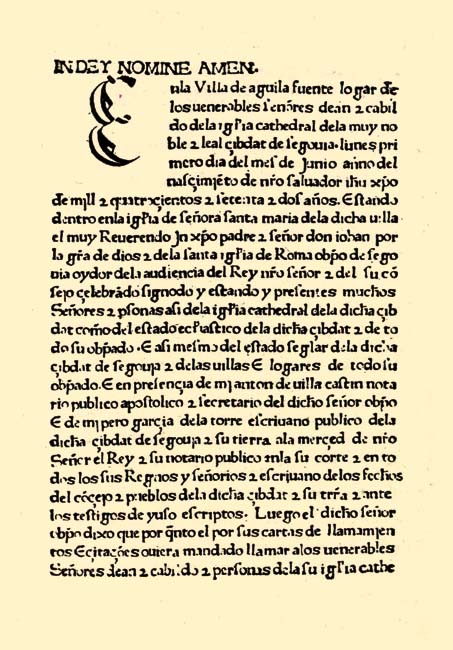 IN DEY NOMINE AMEN.
E
nla Villa de aguila fuente logar de
los uenerables señores dean ⁊ cabil
do dela igłia cathedral dela muy no
ble ⁊ leal çibdat de segouia. lunes pri
mero dia del mes de Junio anno del
nasçimiẽto de nr̃o saluador ihũ xp̃o
de mill ⁊ quatroçientos ⁊ setenta ⁊ dos años. Estando
dentro enla igłia de señora santa maria dela dicha uilla
el muy Reuerendo Jn xp̃o padre ⁊ señor don iohan por
la gr̃a de dios ⁊ dela santa igłia de Roma obp̃o de sego
uia oydor dela audiencia del Rey nr̃o señor ⁊ del su cõ
sejo çelebrãdo signodo y estando y presentes muchos
Señores ⁊ p̱sonas asi dela igłia cathedral dela dicha çib
dat como del estado ecłiastico dela dicha çibdat ⁊ de to
do su obp̃ado. E asi mesmo del estado seglar dela dicha
çibdat de segouja ⁊ delas uillas E logares de todo su
obp̃ado. E en presençia de mj anton de uilla castin nota
rio publico apostolico ⁊ secretario del dicho señor obp̃o
E de mj pero garçia dela torre escriuano publico dela
dicha çibdat de segouja ⁊ su tierra ala merçed de nr̃o
Señor el Rey ⁊ su notario publico enla su corte ⁊ en to
dos los sus Regnos y señorios ⁊ escrjuano delos fechos
del cõçejo ⁊ pueblos dela dicha çibdat ⁊ su trr̃a ⁊ ante
los testigos de yuso escriptos. Luego el dicho señor
obp̃o dixo que por q̃nto el por sus cartas de llamamjen
tos E çitações ouiera mandado llamar alos uenerables
Señores dean ⁊ cabildo ⁊ personas dela su igłia cathe